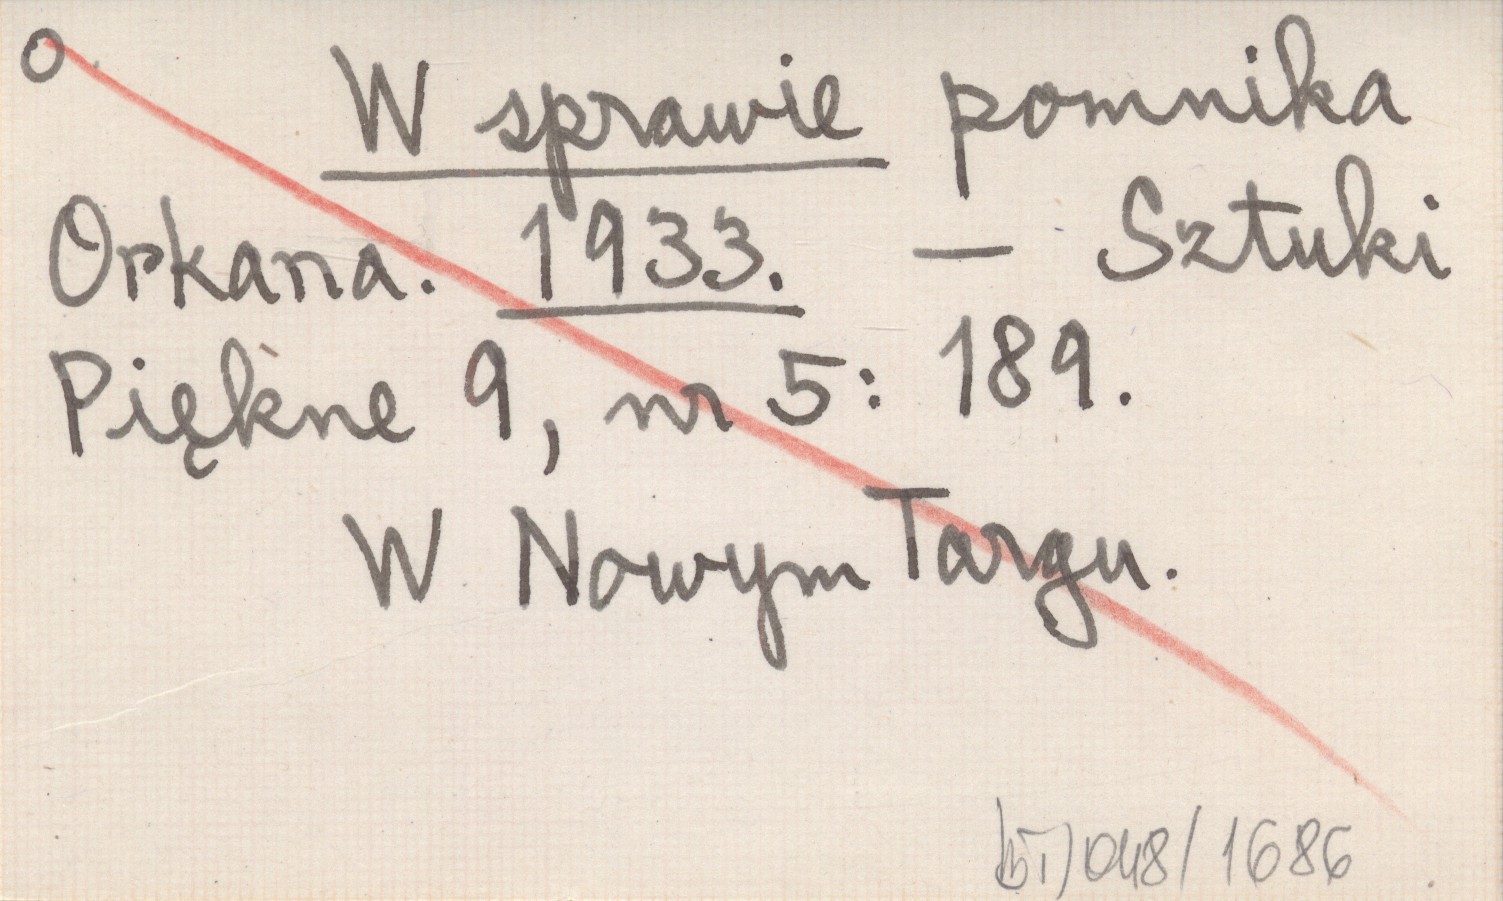 O
W sprawie pomnika
Orkana. 1933. — Sztuki
Piękne 9, nr 5: 189.
W Nowym Targu.
048/1686